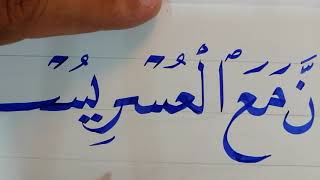 نَّ مَعَ ٱلْعُسْرِ يُسـ